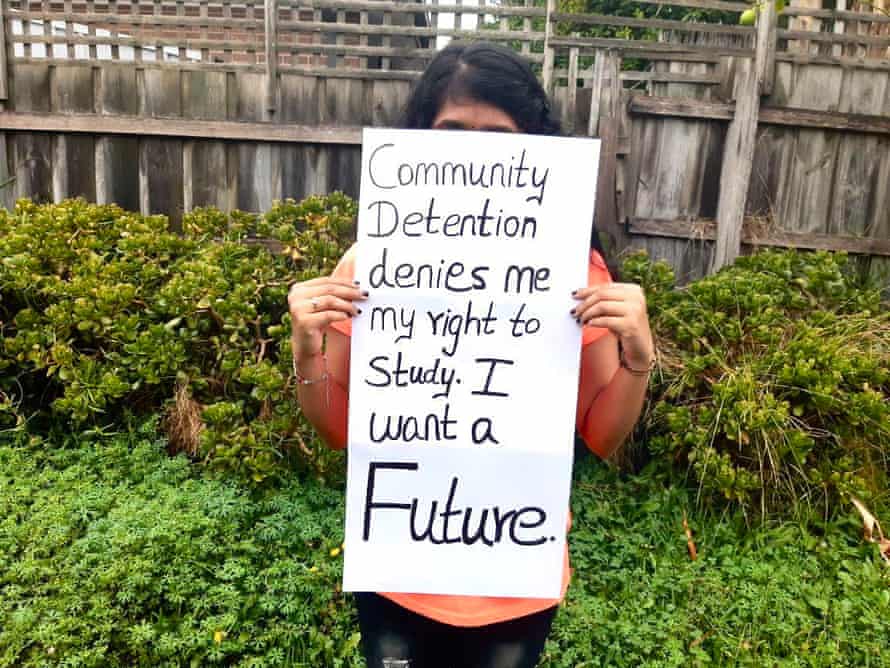 Community
Detention
denies me
my right to
Study. I
want a
Future.